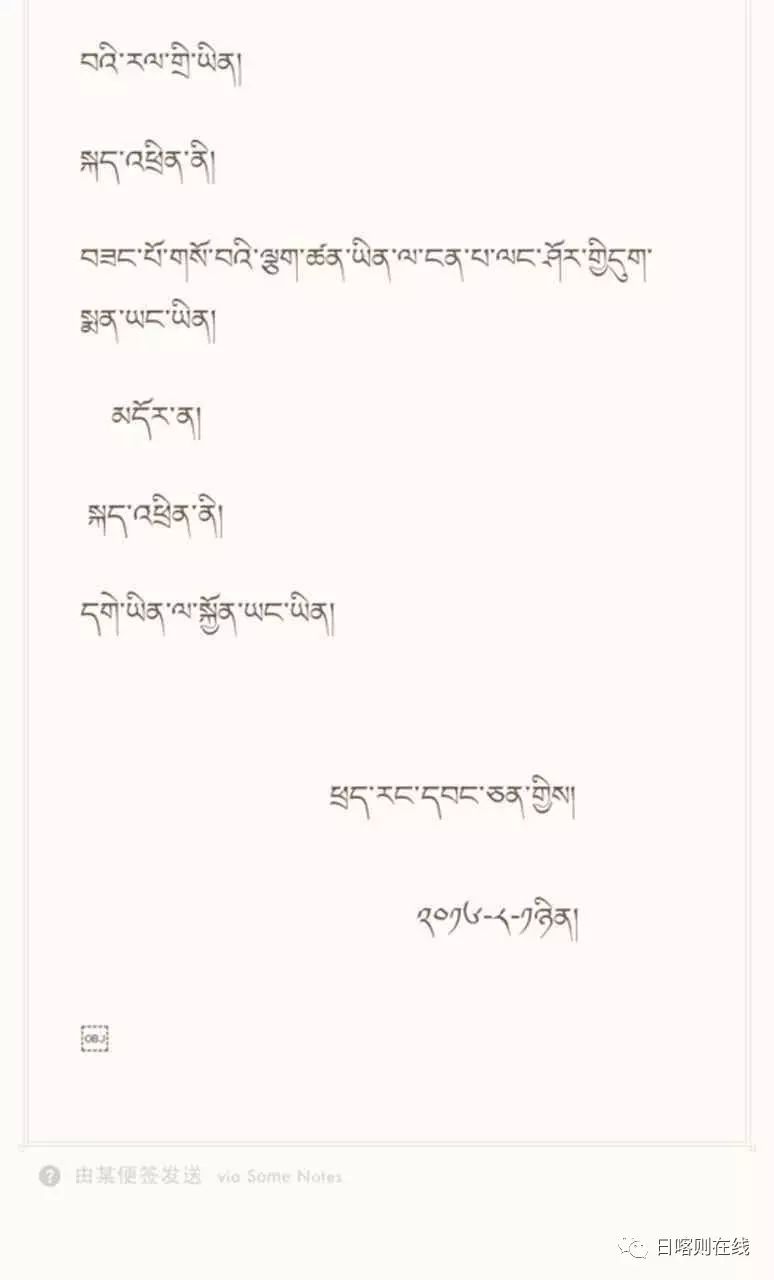 བའི་རལ་གྲི་ཡིན།
སྐད་འཕྲིན་ནི།
བཟང་པོ་གསོ་བའི་ལྕག་ཚན་ཡིན་ལ་ངན་པ་ལང་ཤོར་གྱིདུག་
སྨན་ཡང་ཡིན།
མདོར་ན།
སྐད་འཕྲིན་ནི།
དགེ་ཡིན་ལ་སྐྱོན་ཡང་ཡིན།
ཕྲད་རང་དབང་ཅན་གྱིས།
༢༠༡༦-༨-༡ཉིན།
OBJ
由某便签发送 via Some Notes
日喀则在线